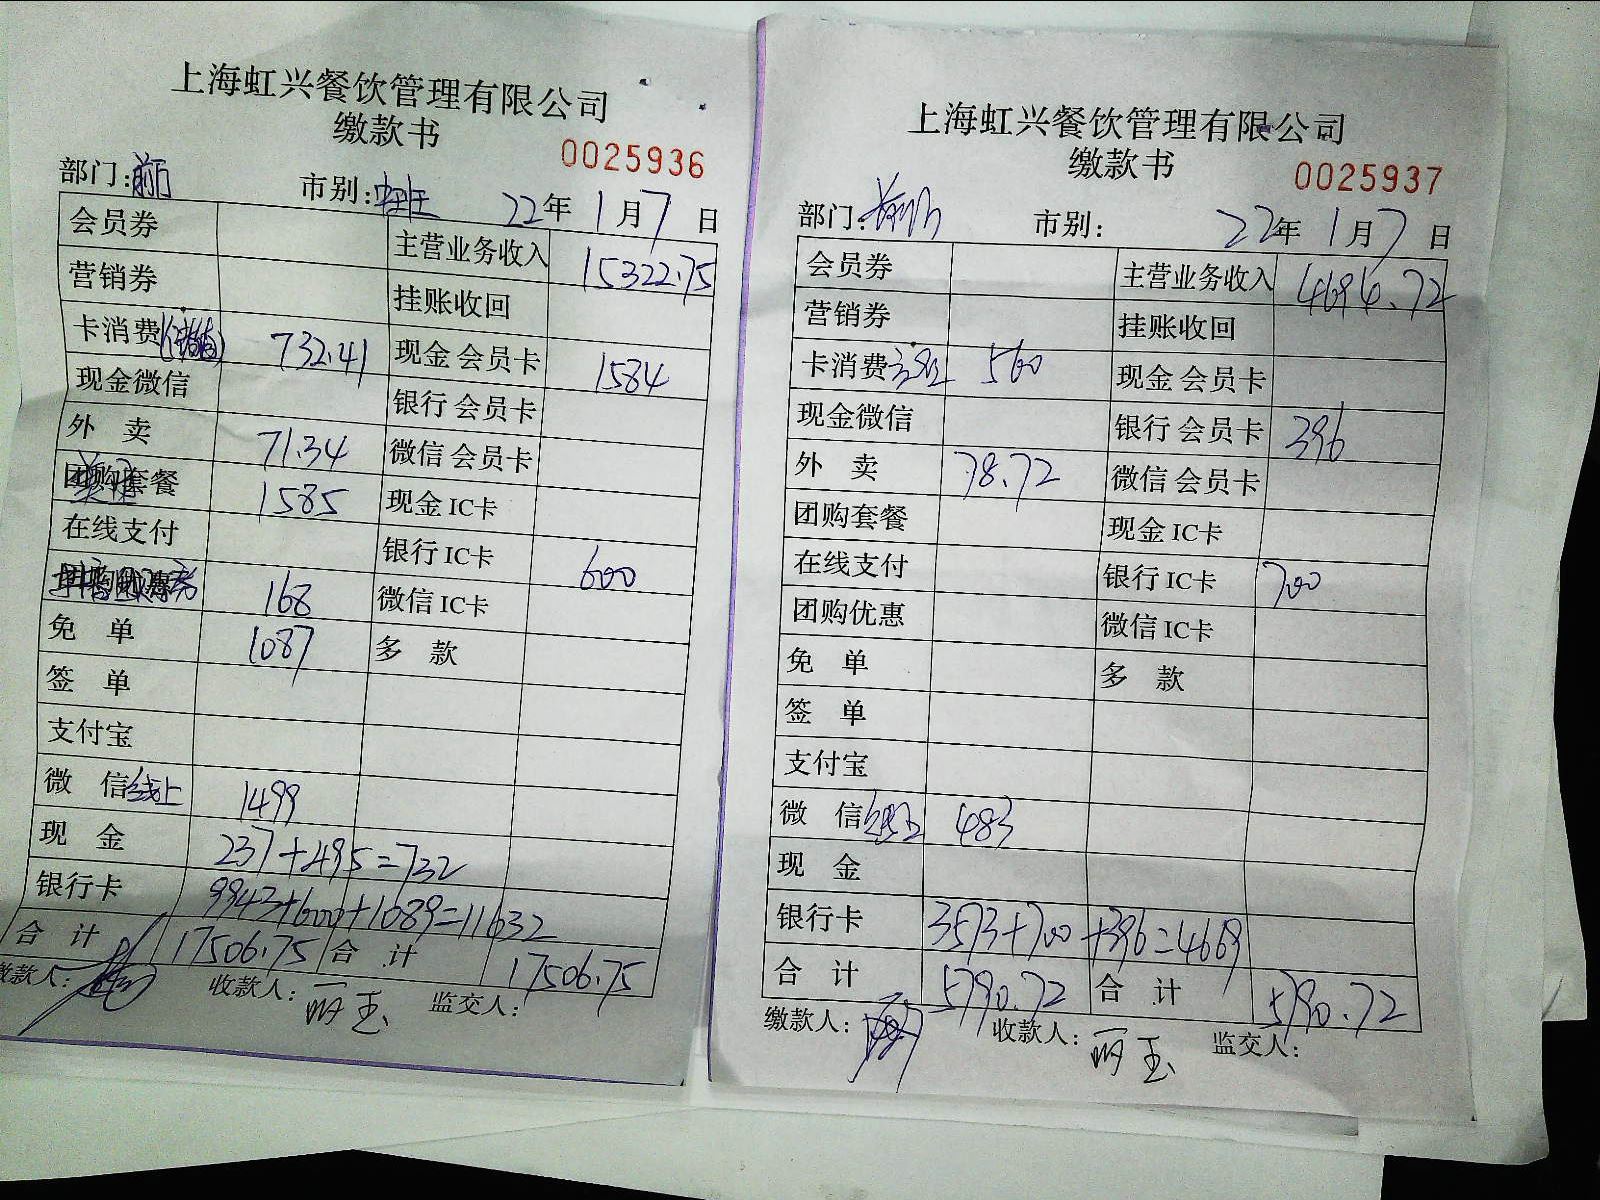 上海虹兴餐饮管理有限公司
缴款书
0025936
部门: 市别: 中班 22年 1月 7日
会员券 主营业务收入 15322.75
营销券 挂账收回
卡消费 732.41 现金 会员卡 1584
现金微信 银行 会员卡
外 卖 71.34 微信 会员卡
团购套餐 1585 现金 IC卡
在线支付 银行 IC卡 600
168 微信 IC卡
免 单 1087 多 款
签 单
支付宝
微 信 线上 1499
现 金 237+495=732
银行卡 9943+600+1089=11632
合 计 17506.75 合 计 17506.75
缴款人: 收款人: 丽玉 监交人:
上海虹兴餐饮管理有限公司
缴款书
0025937
部门: 市别: 22年 1月 7日
会员券 主营业务收入 4694.72
营销券 挂账收回
卡消费 560 现金 会员卡
现金微信 银行 会员卡 396
外 卖 78.72 微信 会员卡
团购套餐 现金 IC卡
在线支付 银行 IC卡 700
团购优惠 微信 IC卡
免 单 多 款
签 单
支付宝
微 信 线上 483
现 金
银行卡 3573+700+396=4669
合 计 5790.72 合 计 5790.72
缴款人: 收款人: 丽玉 监交人: